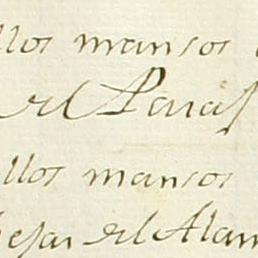 llos mansos
del Peñas
llos mansos
bejar del Alam